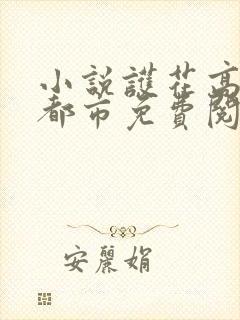 小説護花高
都市免費閱
安麗娟